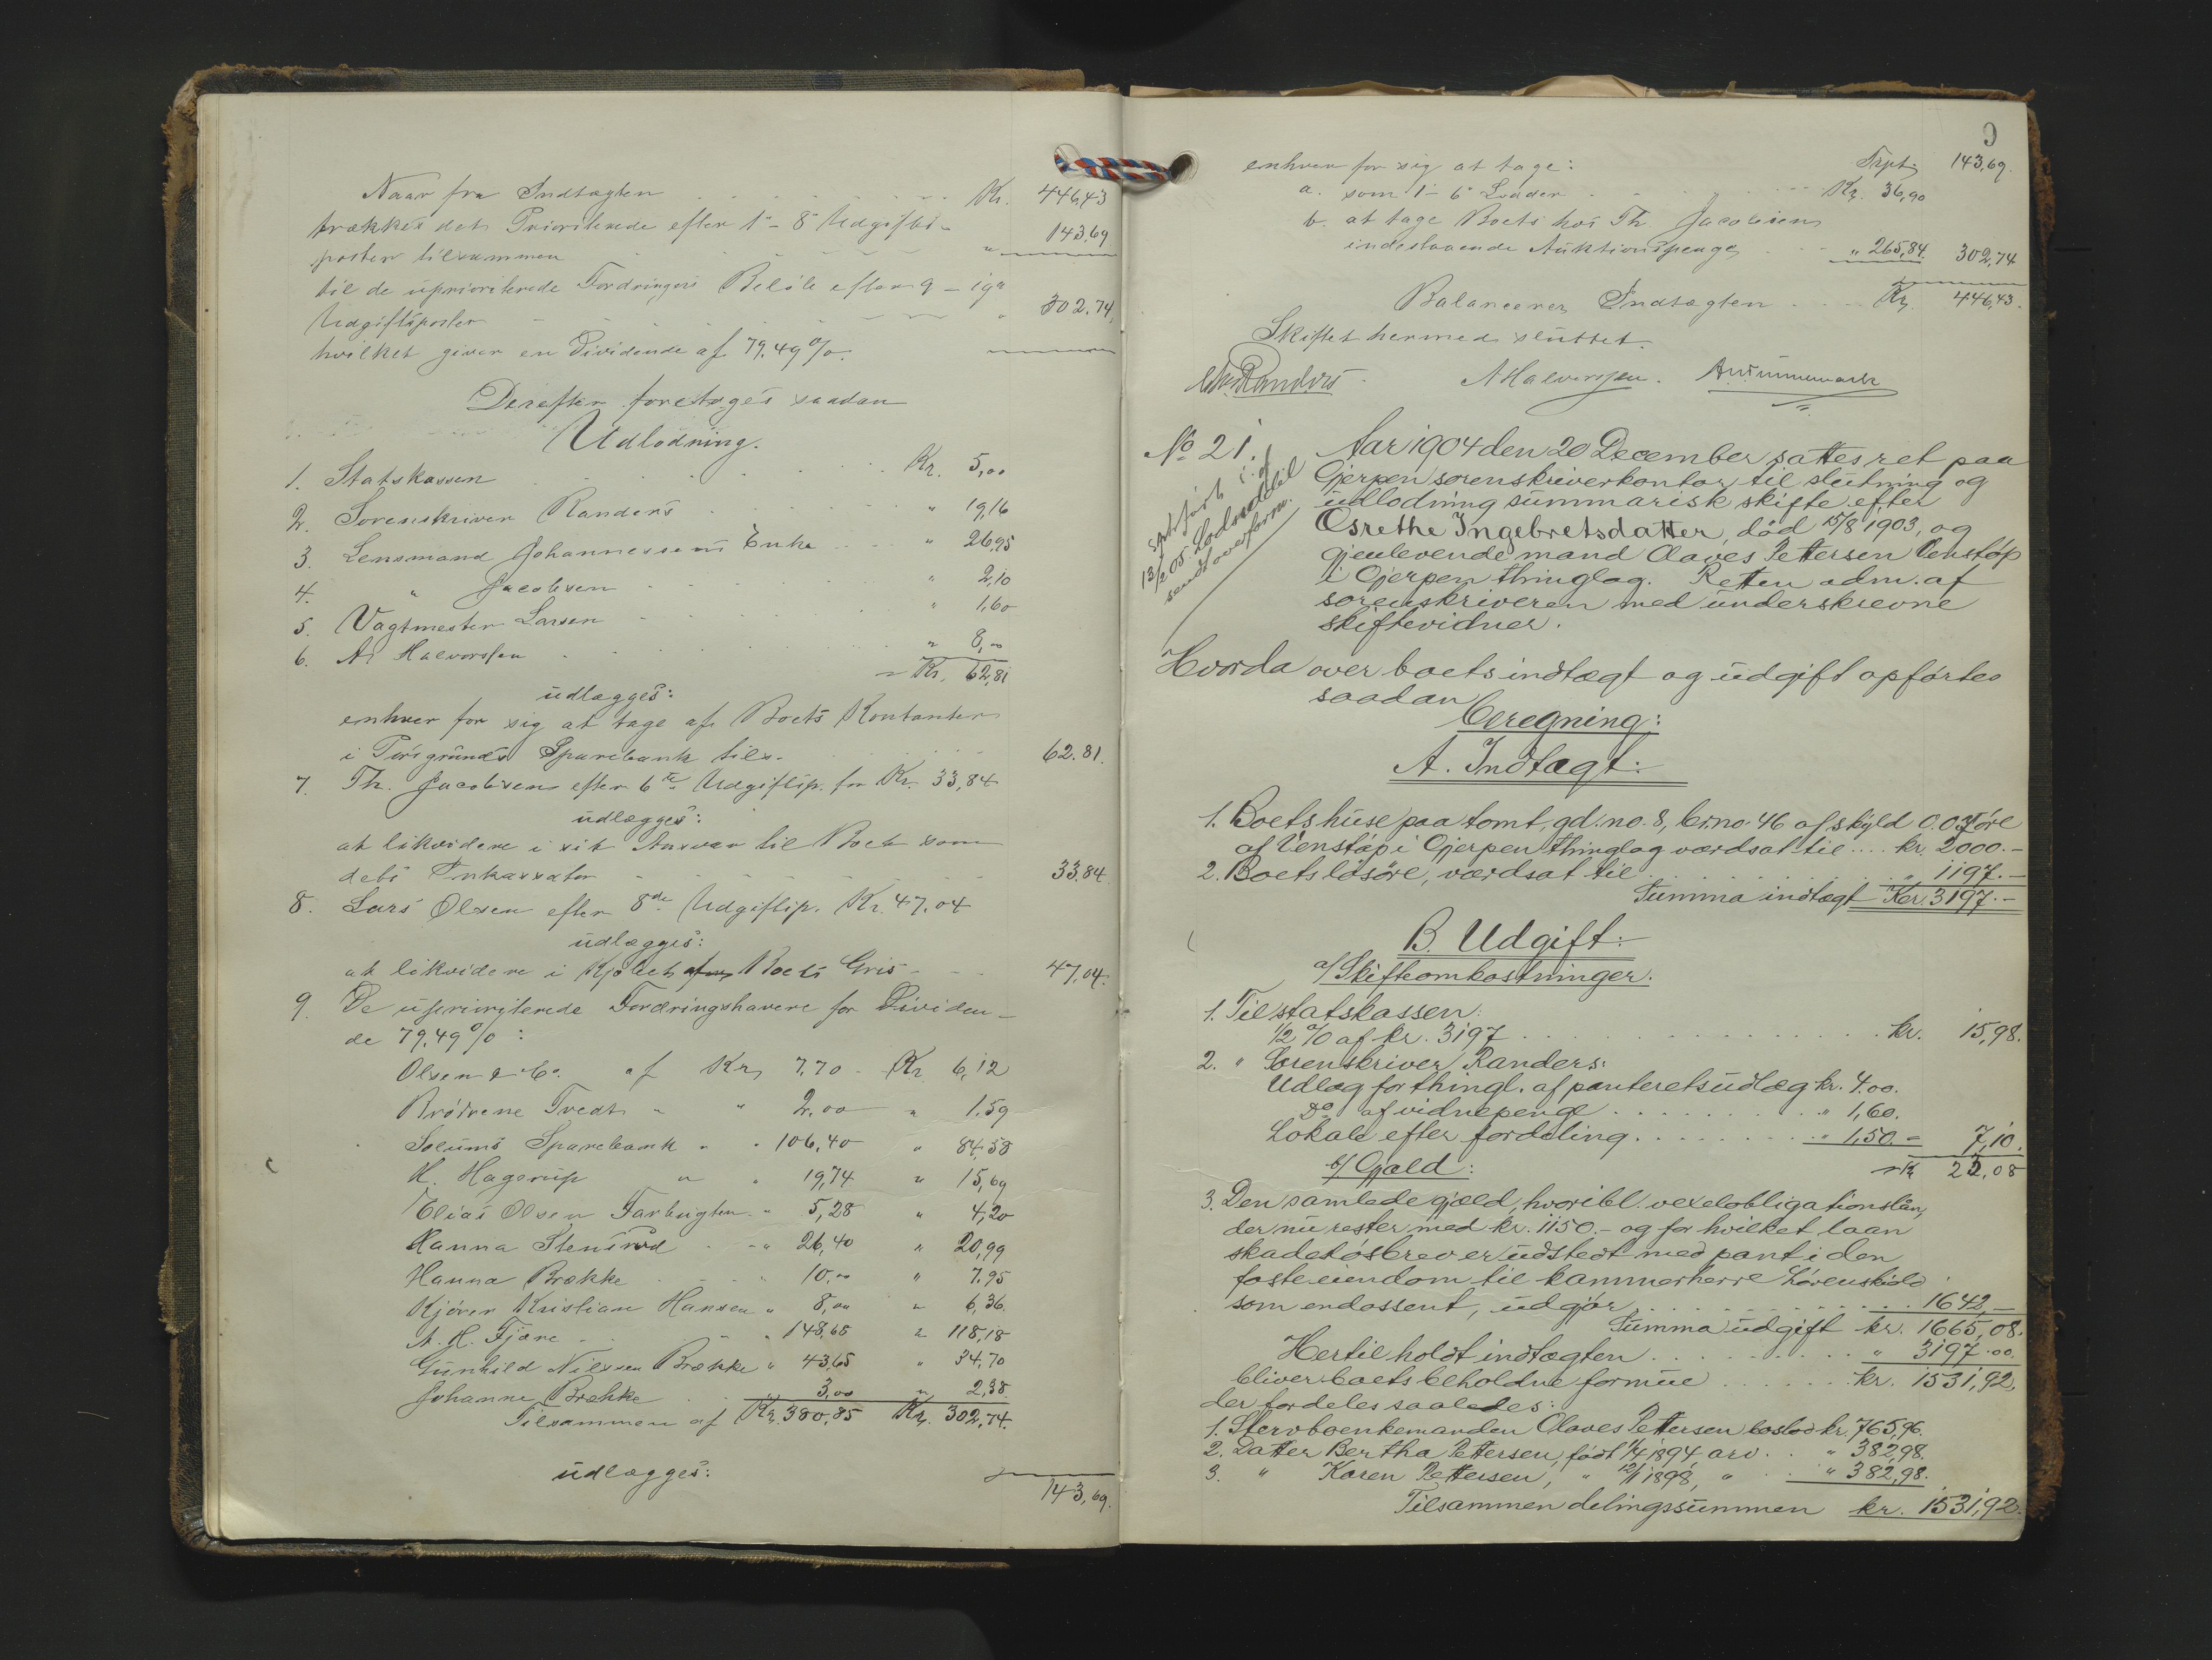 Naar fra Indtægten . . . . . . Kr. 446,43
trækkes det Prioriterede efter 1ˢ - 8ˢ Udgifts-
poster tilsammen . . . . . . " 143,69
til de uprioriterede Fordringers Beløb efter 9 - 19ᵈᵉ
Udgiftsposter . . . . . . " 302,74,
hvilket giver en Dividende af 79,49 %.
Derefter foretoges saadan
Udlodning.
1. Statskassen . . . . . . Kr. 5,00
2. Sorenskriver Randers . . . . . . " 19,16
3. Lensmand Johannessens Enke . . . " 26,95
4. " Jacobsen . . . . . . " 2,10
5. Vagtmester Larsen . . . . . . " 1,60
6. A. Halvorssen . . . . . . " 8,00
= Kr. 62,81
udlægges:
enhver for sig at tage af Boets Kontanter
i Porsgrunds Sparebank tils. . . . . . 62.81.
7. Th. Jacobsen efter 6ᵗᵉ Udgiftsp. for Kr. 33,84
udlægges:
at likvidere i sit Ansvar til Boet som
dets Inkassator . . . . . . 33.84
8. Lars Olsen efter 8ᵈᵉ Udgiftsp. Kr. 47.04
udlægges:
at likvidere i Kjøbet af Boets Gris - - - 47,04.
9. De uprioriterede Fordringshavere for Dividen-
de 79,49 % :
Olsen & Co. af Kr. 7,70 - Kr. 6,12
Brødrene Tvedt " " 2,00 " 1.59
Solums Sparebank " " 106,40 " 84,58
H. Hagerup " " 19,74 " 15,69
Elias Olsen Farbugten " 5,28 " 4,20
Hanna Stensrød " 26,40 " 20,99
Hanna Brække " 10,00 " 7.95
Kjører Kristian Hansen " 8,00 " 6,36.
A. H. Fjære " 148,68 " 118,18
Gunhild Nilssen Brække " 43,65 " 34,70
Johanne Brække " 3,00 " 2,38.
Tilsammen af Kr. 380,85 Kr. 302,74.
udlægges:
143,69.
9
enhver for sig at tage: Trpt. 143,69.
a. som 1 - 6ˢ Lodder . . . . . . Kr. 36,90
b. at tage Boets hos Th. Jacobsen
indestaaende Auktionspenge . . . " 265,84. 302,74
Balancerer Indtægten . . . . Kr. 446,43.
Skiftet hermed sluttet.
Chr. Randers. A Halvorssen.
No 21. Aar 1904 den 20 December sattes ret paa
Gjerpen sorenskriverkontor til slutning og
udlodning summarisk skifte efter
Osrethe Ingebretsdatter, død 15/8 1903, og
gjenlevende mand Olaves Pettersen Venstøp
i Gjerpen thinglag. Retten adm. af
sorenskriveren med underskrevne
skiftevidner.
13/2 05 Lodseddel til
sendt overform.
Hvorda over boets indtægt og udgift opførtes
saadan
Beregning:
A. Indtægt:
1. Boets huse paa tomt, gd.no. 8, br.no. 46 af skyld 0.03 øre
af Venstøp i Gjerpen thinglag værdsat til .... kr. 2000.-
2. Boets løsøre, værdsat til . . . . . . " 1197.-
Summa indtægt Kr. 3197.-
B. Udgift:
a/ Skifteomkostninger.
1. Til statskassen:
1/2 % af kr. 3197 . . . . . . kr. 15,98.
2. " Sorenskriver Randers:
Udlæg for thingl. af panteretsudlæg kr. 4.00.
Do af vidnepenge . . . . . . " 1,60.
Lokale efter fordeling . . . . . . " 1,50. = 7,10.
b/ Gjæld: = kr. 23,08
3. Den samlede gjæld, hvori bl. vexelobligationslån,
der nu rester med kr. 1150.- og for hvilket laan
skadesløsbrev er udstedt med pant i den
faste eiendom til kammerherre Løvenskiold
som endossent, udgjør . . . . . . 1642,-
Summa udgift kr. 1665,08.
Hertil holdt indtægten . . . . . . " 3197.00.
bliver boets beholdne formue . . . . . . kr. 1531,92,
der fordeles saaledes:
1. Stervboenkemanden Olaves Pettersen boslod kr. 765,96.
2. Datter Bertha Pettersen, født 1/4 1894, arv . . " 382,98.
3. " Karen Pettersen, " 12/1 1898, " . . " 382,98.
Tilsammen delingssummen kr. 1531,92.